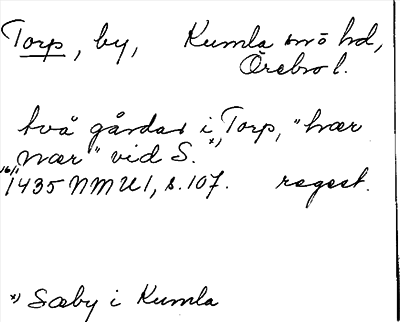 Torp, by, Kumla snö hd,
Örebro l.
två gårdar i Torp, "hwær
nær" vid S. *)
16/1 1435 NMU 1, s. 107. regest.
*) Sæby i Kumla